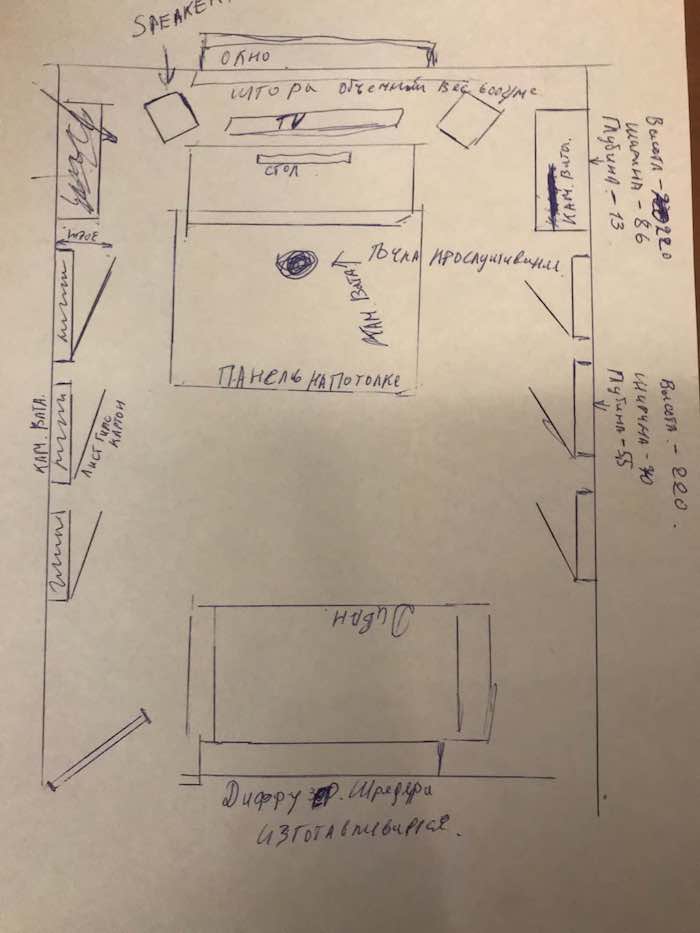 SPEAKER
ОКНО
ШТОРЫ ОБЪЕМНЫЙ ВЕС 600
TV
СТОЛ
КАМ. ВАТА.
Высота - 220
Ширина - 86
Глубина - 13
ТОЧКА ПРОСЛУШИВАНИЯ
КАМ. ВАТА
ПАНЕЛЬ НА ПОТОЛКЕ
КАМ. ВАТА.
ЛИСТ ГИПС
КАРТОН
Высота. - 220.
Ширина - 70
Глубина - 55
Диван
Диффузор. Шредера
изготавливается.